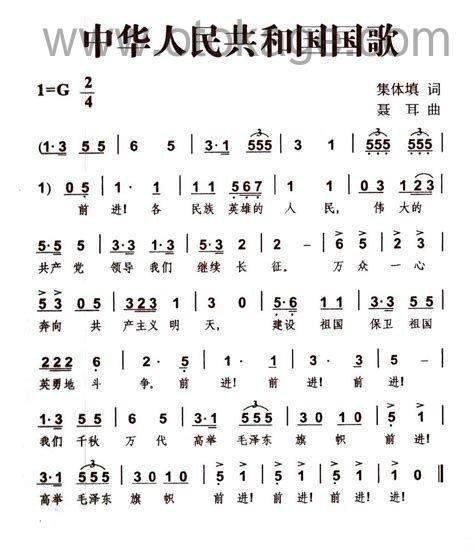 www.otohage.com
中华人民共和国国歌
1=G 2/4
集体填 词
聂 耳 曲
(1·3 5 5 | 6 5 | 3·1 555 | 3 555 3 |
1) 0 5 | 1· 1 | 1·1 567 | 1 1 | 0 3 123 |
前 进! 各 民族 英雄的 人 民, 伟 大的
5·5 5 | 3·3 1·3 | 5·3 2 | 2 - | 6 5 | 2 3 |
共产 党 领导 我们 继续 长 征。 万 众 一 心
5 3 0 5 | 323 1 | 3 0 | 5·6 1 1 | 3·3 5 5 |
奔向 共 产主义 明 天, 建设 祖国 保卫 祖国
222 6 | 2· 5 | 1· 1 | 3· 3 | 5 - |
英勇地 斗 争。 前 进! 前 进! 前 进!
1·3 5 5 | 6 5 | 3·1 555 | 30 10 | 5 1 |
我们 千秋 万 代 高举 毛泽东 旗 帜 前 进!
3·1 555 | 30 10 | 5 1 | 5 1 | 5 1 | 1 0 ‖
高举 毛泽东 旗 帜 前 进! 前 进! 前 进! 进!